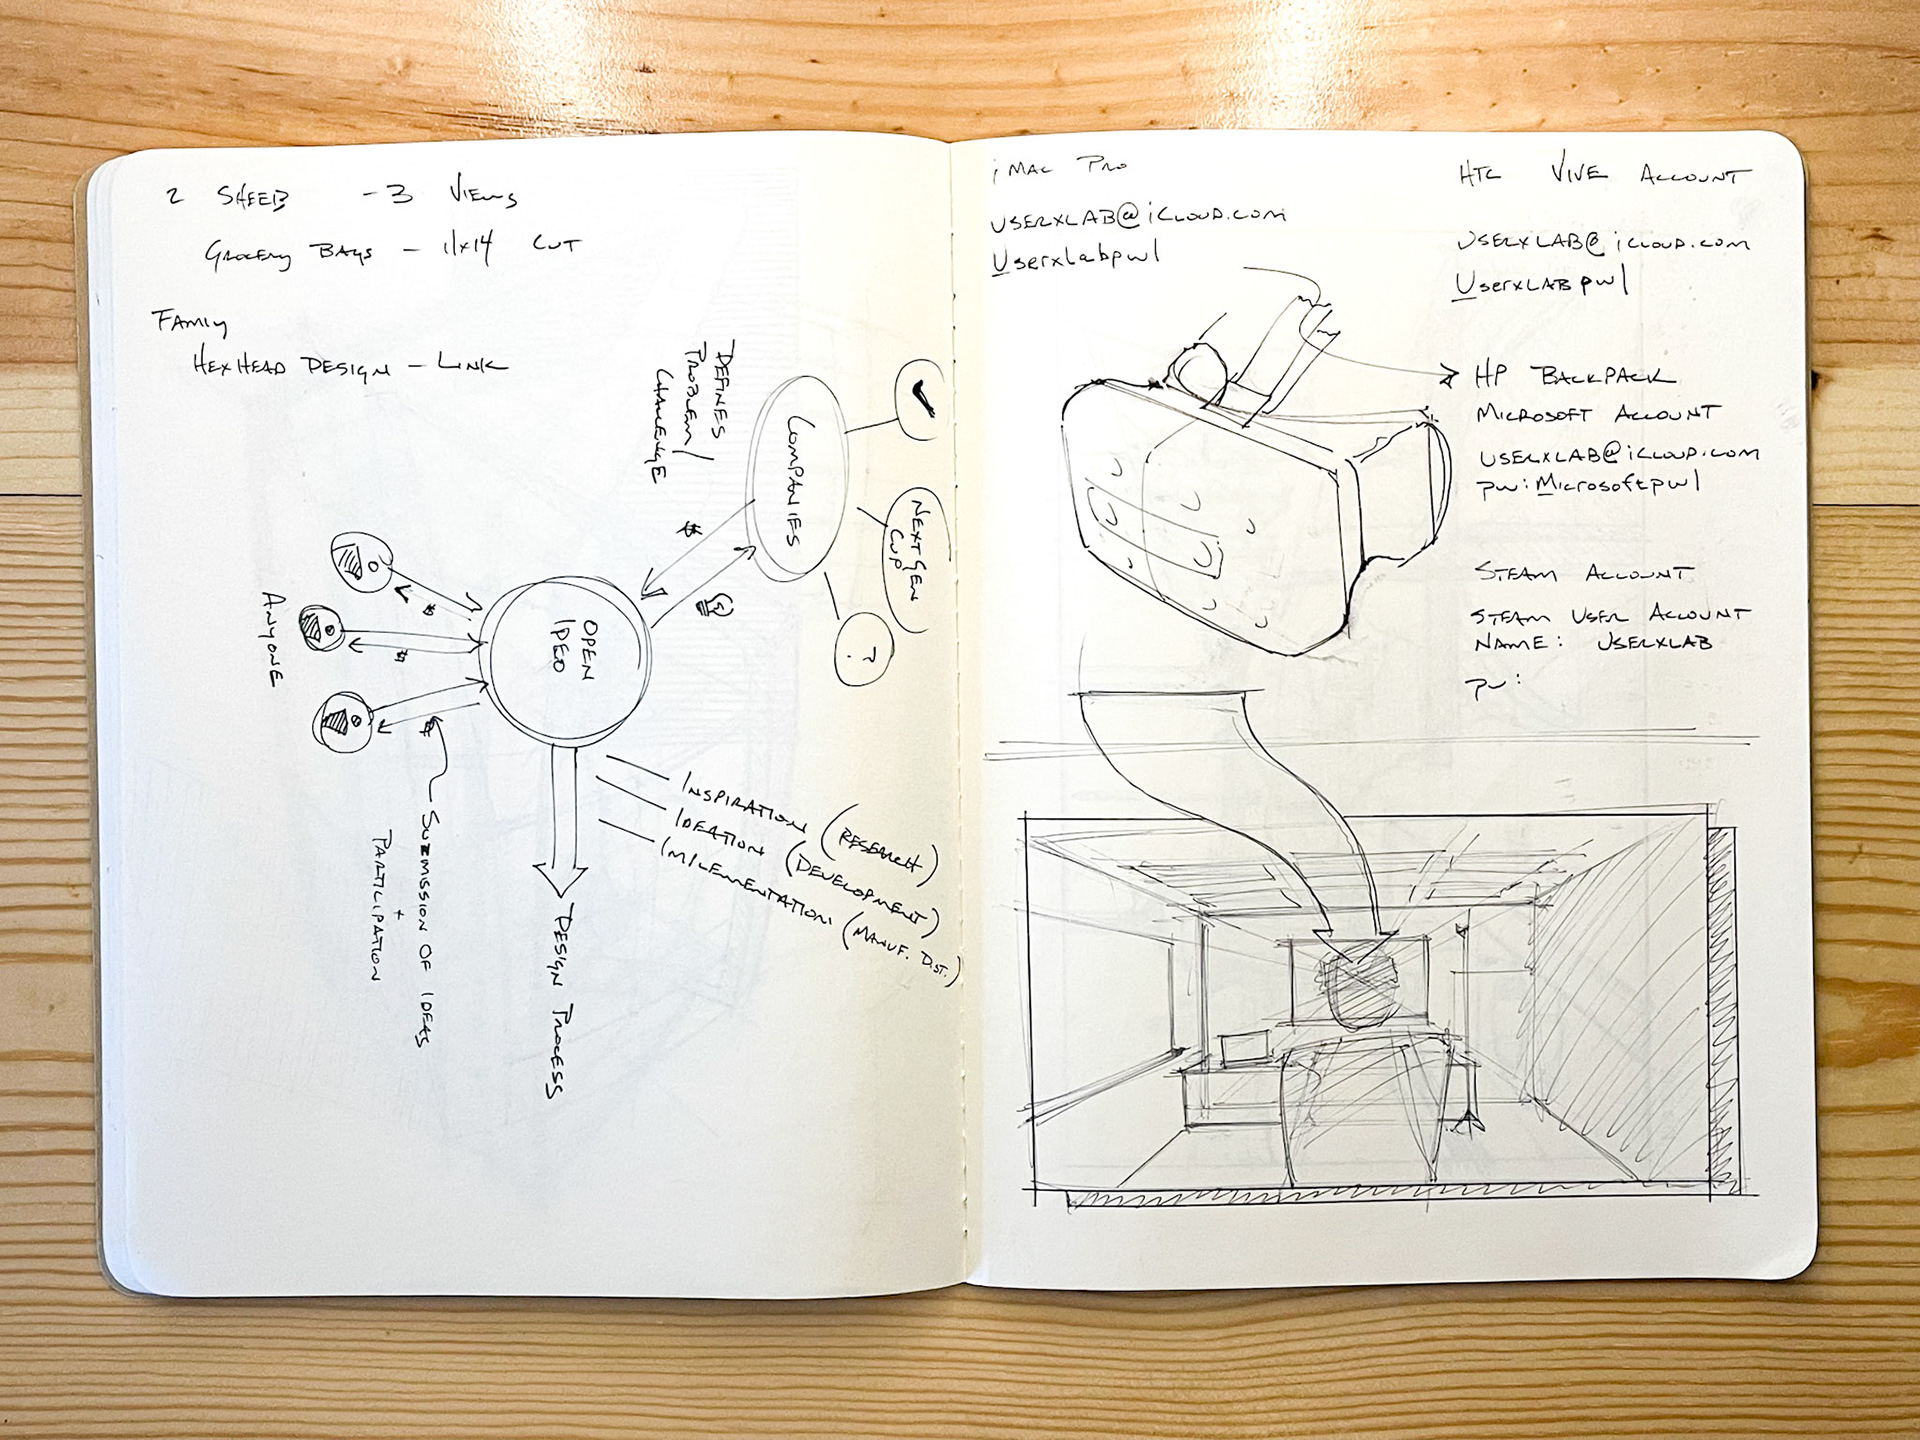 2 SHEETS - 3 VIEWS
GROCERY BAGS - 11x14 CUT
FAMILY
HEXHEAD DESIGN - LINK
DEFINES
PROBLEM/
CHALLENGE
COMPANIES
NEXT GEN
CUP
?
$
OPEN
IDEO
ANYONE
$
$
$
SUBMISSION OF IDEAS
+
PARTICIPATION
INSPIRATION (RESEARCH)
IDEATION (DEVELOPMENT)
IMPLEMENTATION (MANUF. DIST.)
DESIGN PROCESS
iMAC PRO
USERXLAB@iCLOUD.COM
Userxlabpw1
HTC VIVE ACCOUNT
USERXLAB@iCLOUD.COM
UserxLABpw1
HP BACKPACK
MICROSOFT ACCOUNT
USERXLAB@iCLOUD.COM
pw: Microsoftpw1
STEAM ACCOUNT
STEAM USER ACCOUNT
NAME: USERXLAB
pw: